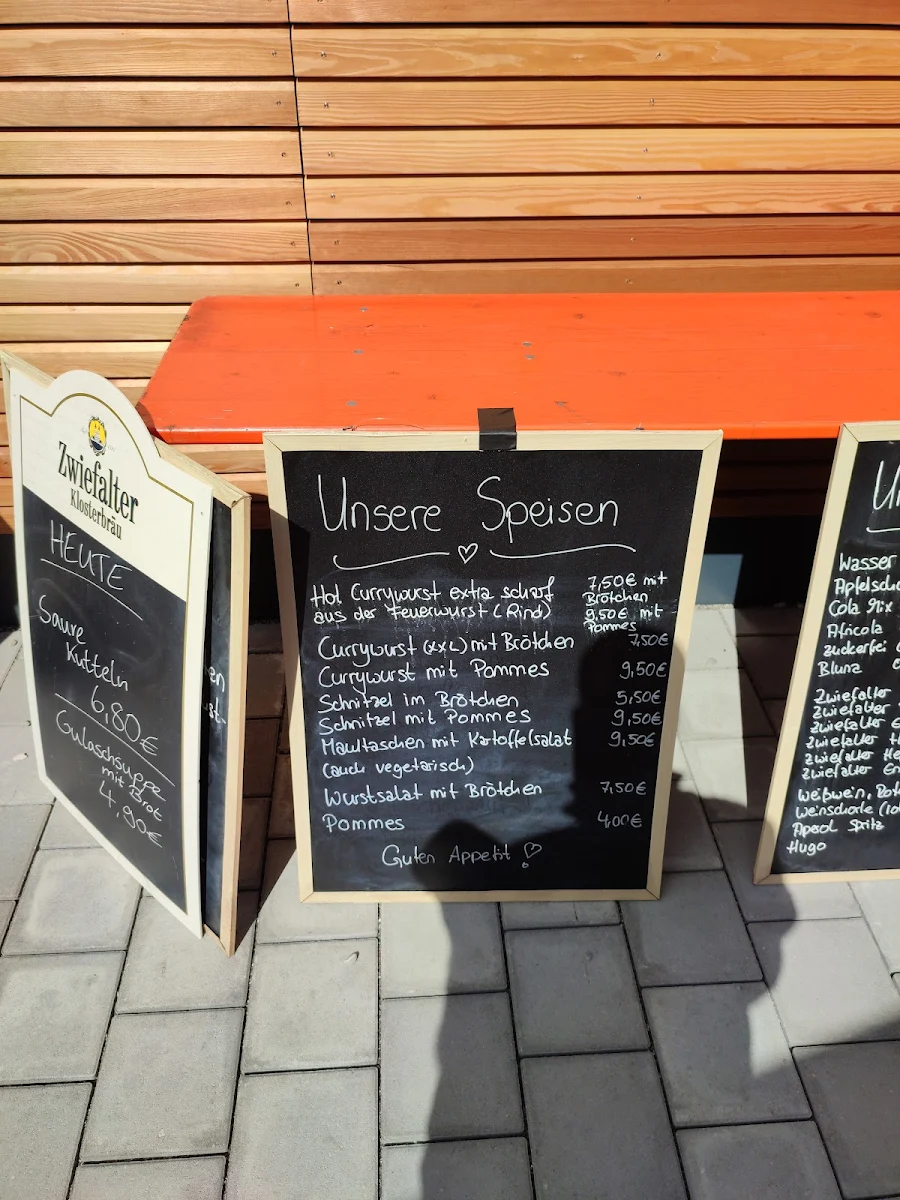 Zwiefalter
Klosterbräu
HEUTE
Saure
Kutteln
6,80€
Gulaschsuppe
mit Brot
4,90€
Unsere Speisen
Hot Currywurst extra scharf 7,50€ mit Brötchen
aus der Feuerwurst (Rind) 8,50€ mit Pommes
Currywurst (XXL) mit Brötchen 7,50€
Currywurst mit Pommes 9,50€
Schnitzel im Brötchen 5,50€
Schnitzel mit Pommes 9,50€
Maultaschen mit Kartoffelsalat 9,50€
(auch vegetarisch)
Wurstsalat mit Brötchen 7,50€
Pommes 4,00€
Guten Appetit
Wasser
Apfelscho
Cola Mix
Africola
zuckerfrei
Bluna
Zwiefalter
Zwiefalter
Zwiefalter
Zwiefalter
Zwiefalter He
Zwiefalter
Weißwein, Rot
Weinschorle
Aperol Spritz
Hugo